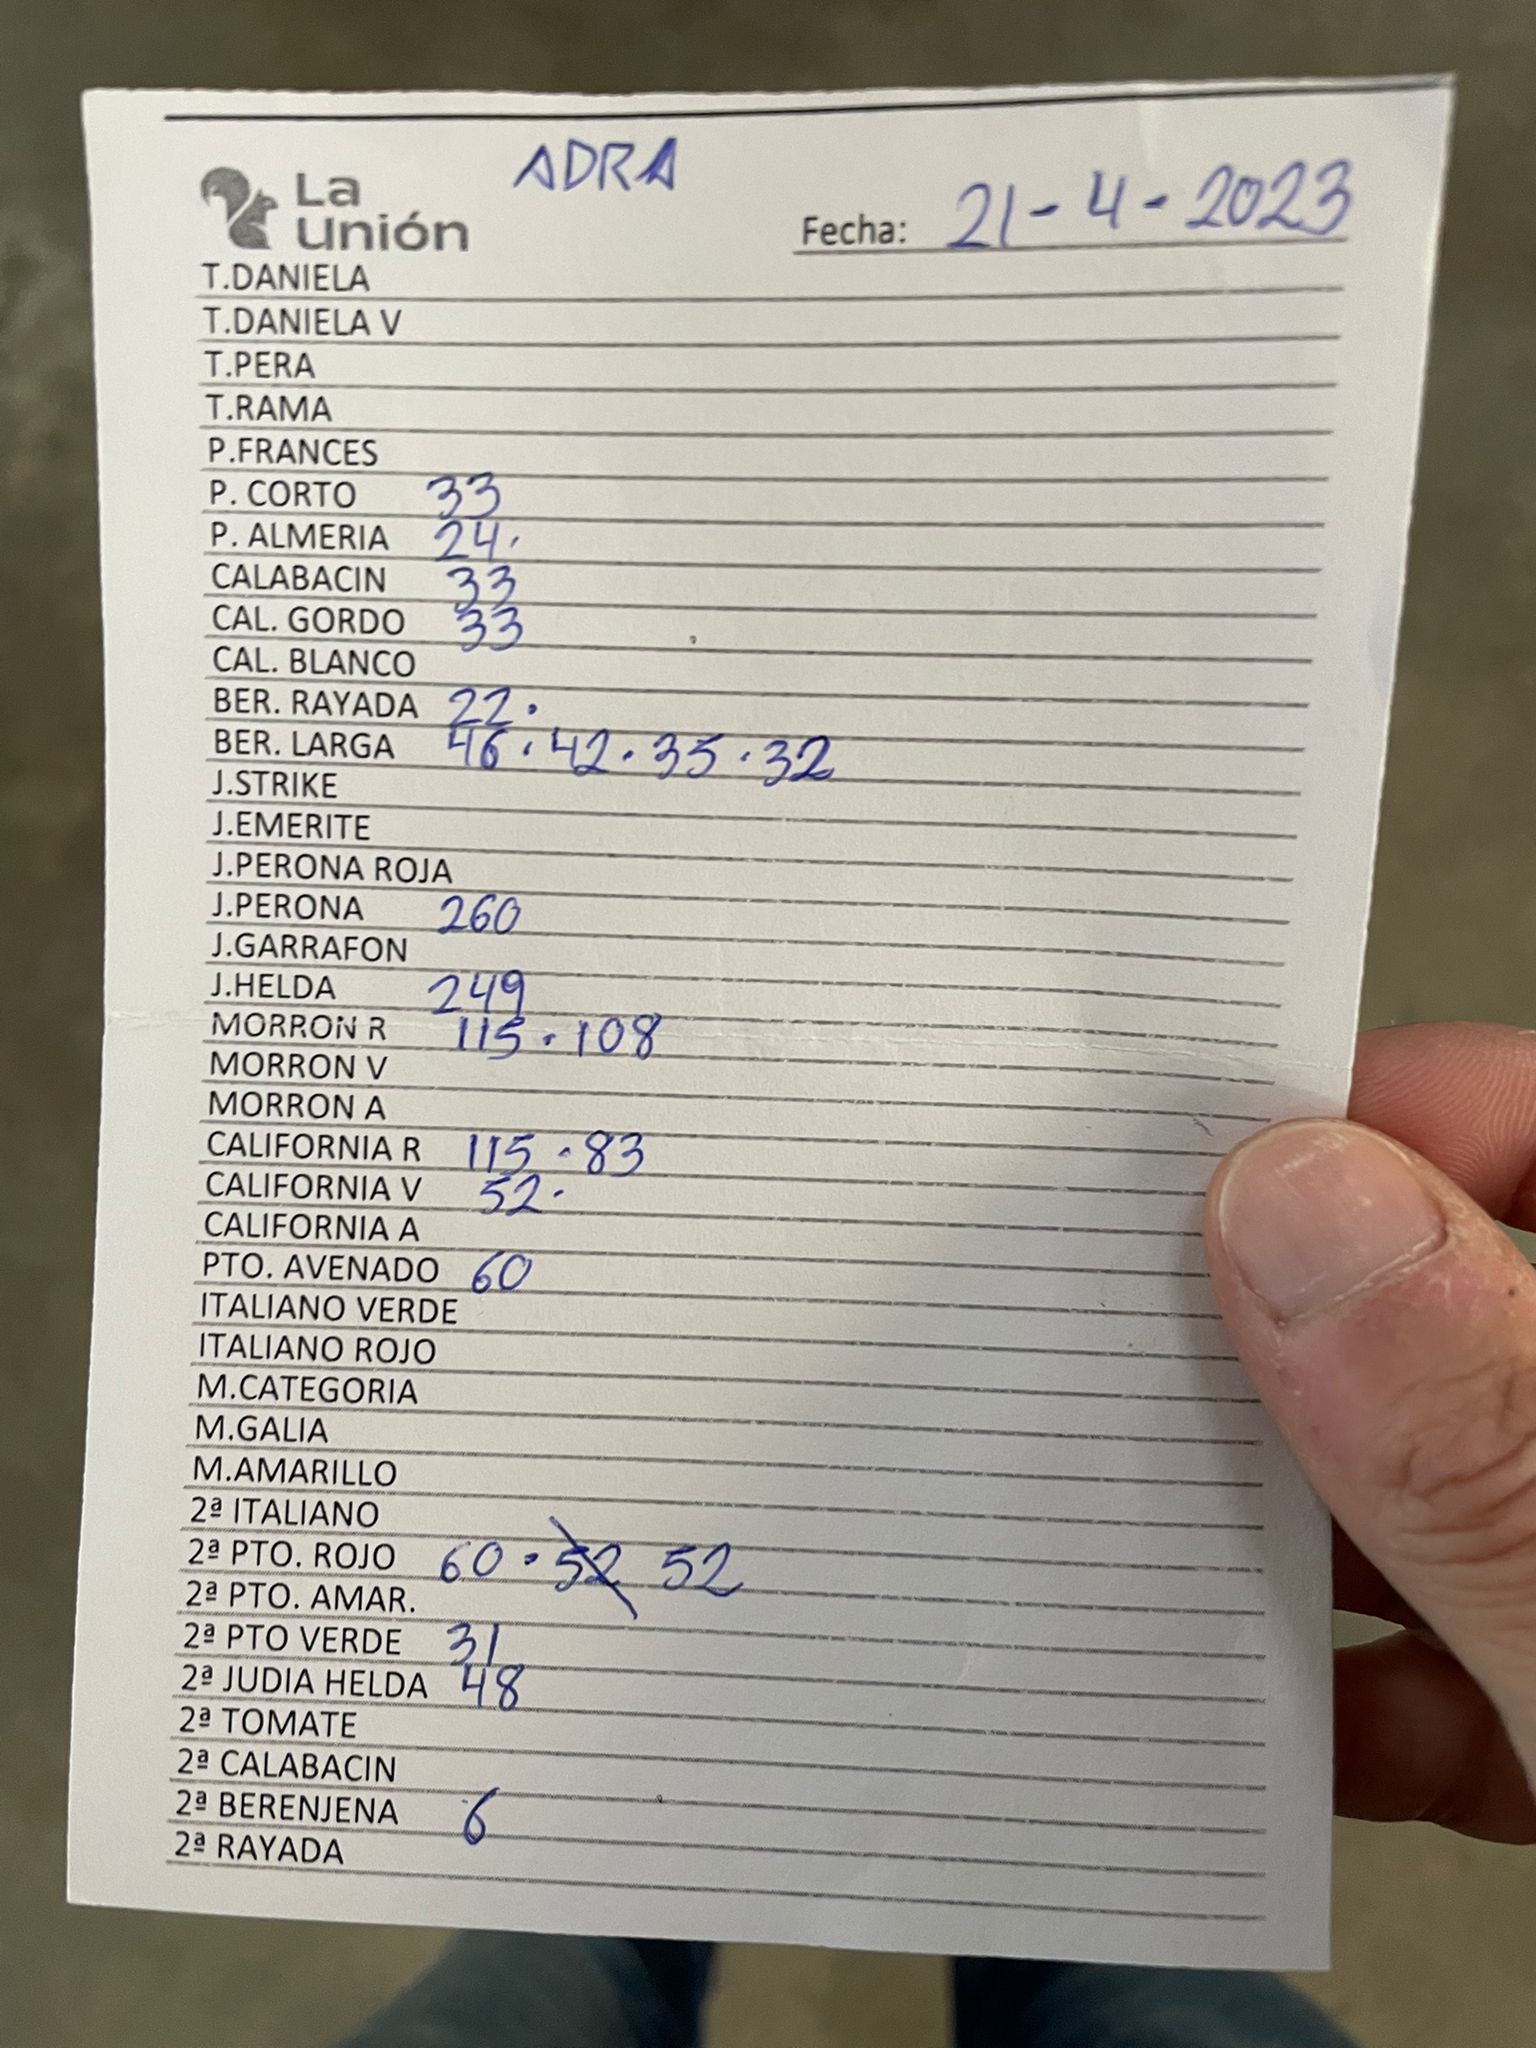 ADRA
La
Unión
Fecha: 21-4-2023
T.DANIELA
T.DANIELA V
T.PERA
T.RAMA
P.FRANCES
P. CORTO 33
P. ALMERIA 24.
CALABACIN 33
CAL. GORDO 33
CAL. BLANCO
BER. RAYADA 22.
BER. LARGA 46.42.35.32
J.STRIKE
J.EMERITE
J.PERONA ROJA
J.PERONA 260
J.GARRAFON
J.HELDA 249
MORRON R 115.108
MORRON V
MORRON A
CALIFORNIA R 115.83
CALIFORNIA V 52.
CALIFORNIA A
PTO. AVENADO 60
ITALIANO VERDE
ITALIANO ROJO
M.CATEGORIA
M.GALIA
M.AMARILLO
2ª ITALIANO
2ª PTO. ROJO 60.52 52
2ª PTO. AMAR.
2ª PTO VERDE 31
2ª JUDIA HELDA 48
2ª TOMATE
2ª CALABACIN
2ª BERENJENA 6
2ª RAYADA